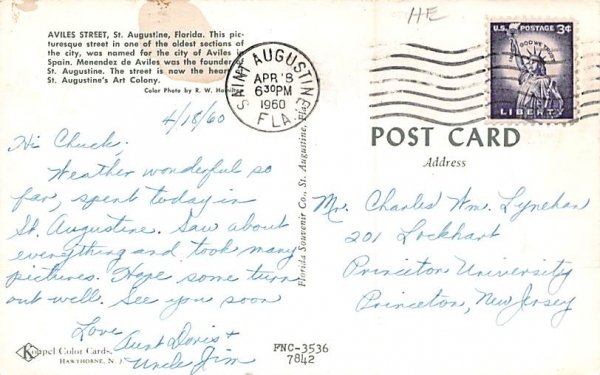 AVILES STREET, St. Augustine, Florida. This pic-
turesque street in one of the oldest sections of
the city, was named for the city of Aviles in
Spain. Menendez de Aviles was the founder
St. Augustine. The street is now the hear
St. Augustine's Art Colony.
Color Photo by R. W.
HE
SAINT AUGUSTINE
APR 8
6 30 PM
1960
FLA.
U.S. POSTAGE 3¢
IN GOD WE TRUST
LIBERTY
4/18/60
Hi Chuck,
Weather wonderful so
far, spent today in
St. Augustine. Saw about
everything and took many
pictures. Hope some turn
out well. See you soon
Love
Aunt Doris +
Uncle Jim
Koppel Color Cards
HAWTHORNE, N. J.
Florida Souvenir Co., St. Augustine, Fla.
FNC-3536
7842
POST CARD
Address
Mr. Charles Wm. Lynehan
201 Lockhart
Princeton University
Princeton, New Jersey